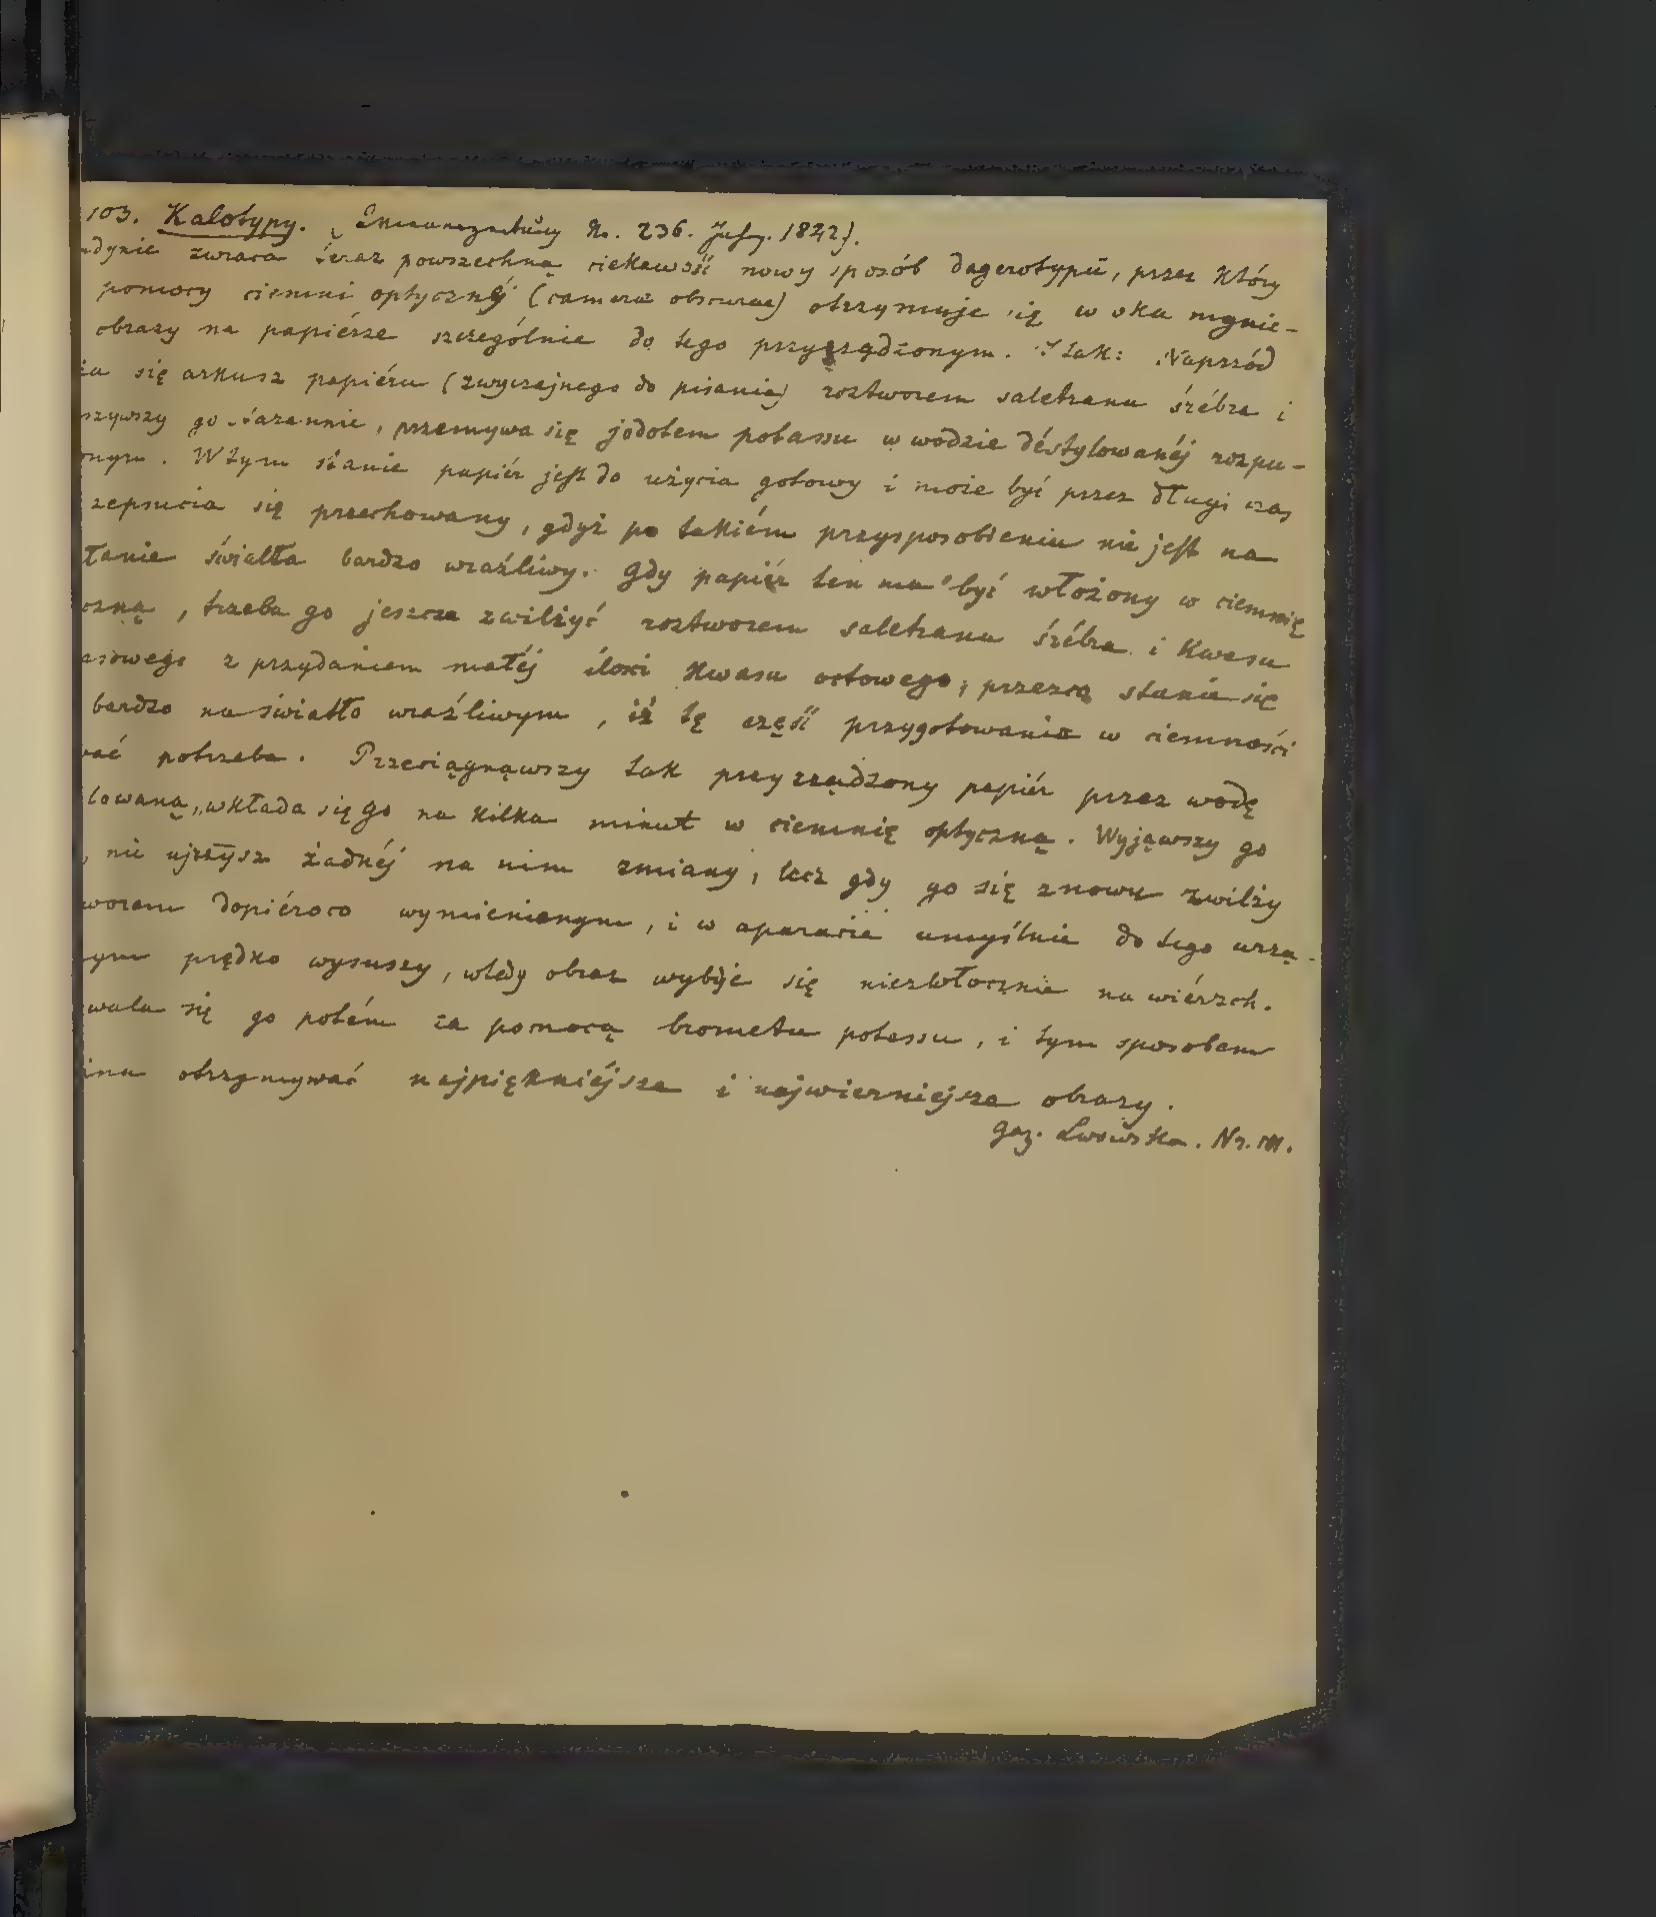 103. Kalotypy. No. 236. 1842).
zwraca teraz powszechną ciekawość nowy sposób dagerotypu, przez który
pomocy ciemni optycznéj (camerae obscurae) otrzymuje się w oku mgnie-
obrazy na papiérze szczególnie do tego przyrządzonym. I tak: Naprzód
się arkusz papiéru (zwyczajnego do pisania) roztworem saletranu śrébra i
go starannie, przemywa się jodotem potassu w wodzie déstylowanéj rozpu-
W tym stanie papiér jest do użycia gotowy i może być przez długi czas
zepsucia się przechowany, gdyż po takiém przysposobieniu nie jest na
światła bardzo wraźliwy. Gdy papiér ten ma być włożony w ciemnię
, trzeba go jeszcze zwilżyć roztworem saletranu śrébra i kwasu
z przydaniem małéj ilości kwasu octowego, przezco stanie się
bardzo na światło wraźliwym, iż tę część przygotowania w ciemności
potrzeba. Przeciągnąwszy tak przyrządzony papiér przez wodę
wkłada się go na kilka minut w ciemnię optyczną. Wyjąwszy go
, nie ujrzysz żadnéj na nim zmiany, lecz gdy go się znowu zwilży
dopiéroco wymienionym, i w aparacie umyślnie do tego urzą-
prędko wysuszy, wtedy obraz wybije się niezwłocznie na wiérzch.
się go potém za pomocą brometu potassu, i tym sposobem
otrzymywać najpiękniéjsze i najwierniejsze obrazy.
Gaz. Lwowska. Nr.